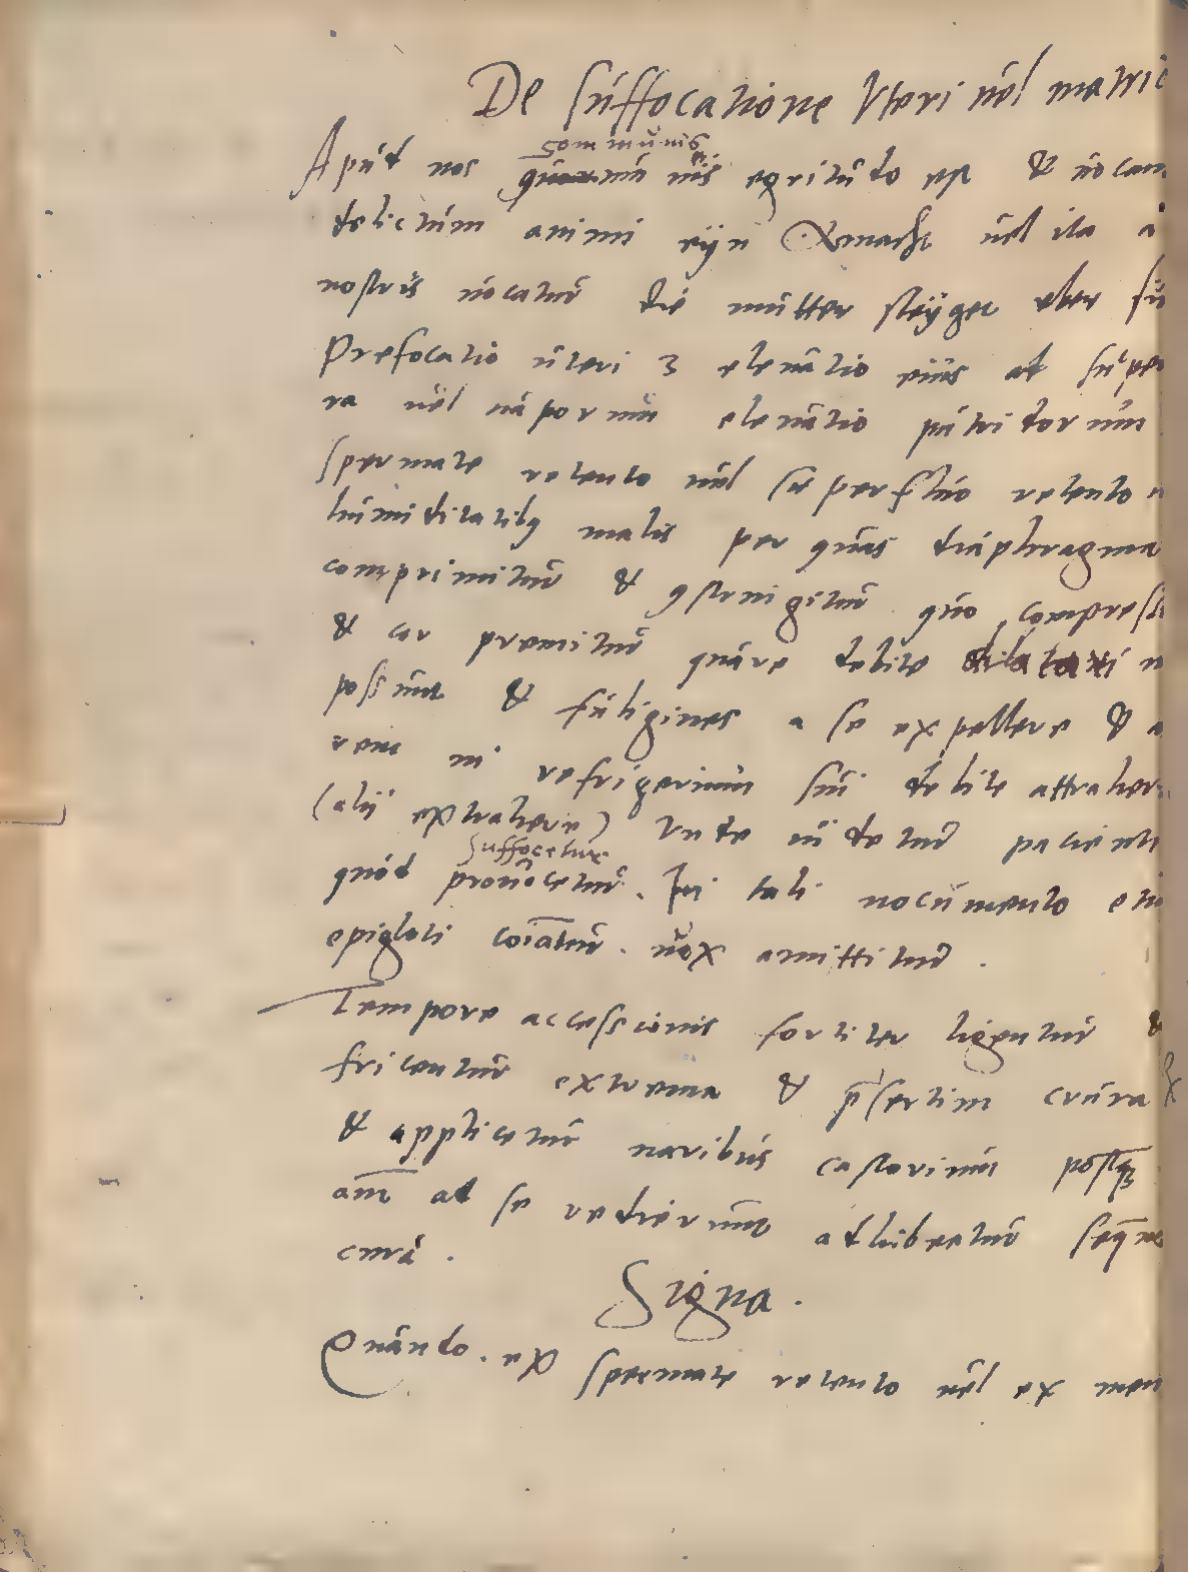 De suffocatione Uteri uel matric
communis
Apud nos uis egritudo est & uocam
delictum animi eyn Omacht uel ita a
nostris uocatur die mutter steyget eber su
Prefocatio uteri 3 eleuatio eius ad super
ra uel uaporum eleuatio putridorum
spermate retento uel superfluo retento u
humiditatibus malis per quas diaphragma
comprimitur & constringitur quo compress
& cor premitur quare debite dilatari n
possunt & fuligines a se expellere & a
rem in refrigerium sui debite attraher
(alii extrahere) Unde uidetur pacienti
suffocetur
quod prouocetur. In tali nocumento eti
epigloti coiatur. uox amittitur.
Tempore accessionis fortiter ligentur &
fricentur extrema & psertim crura
& applicetur naribus castorium postq
am ad se redierunt adhibeatur seque
cura.
Signa.
Quando. ex spermate retento uel ex men